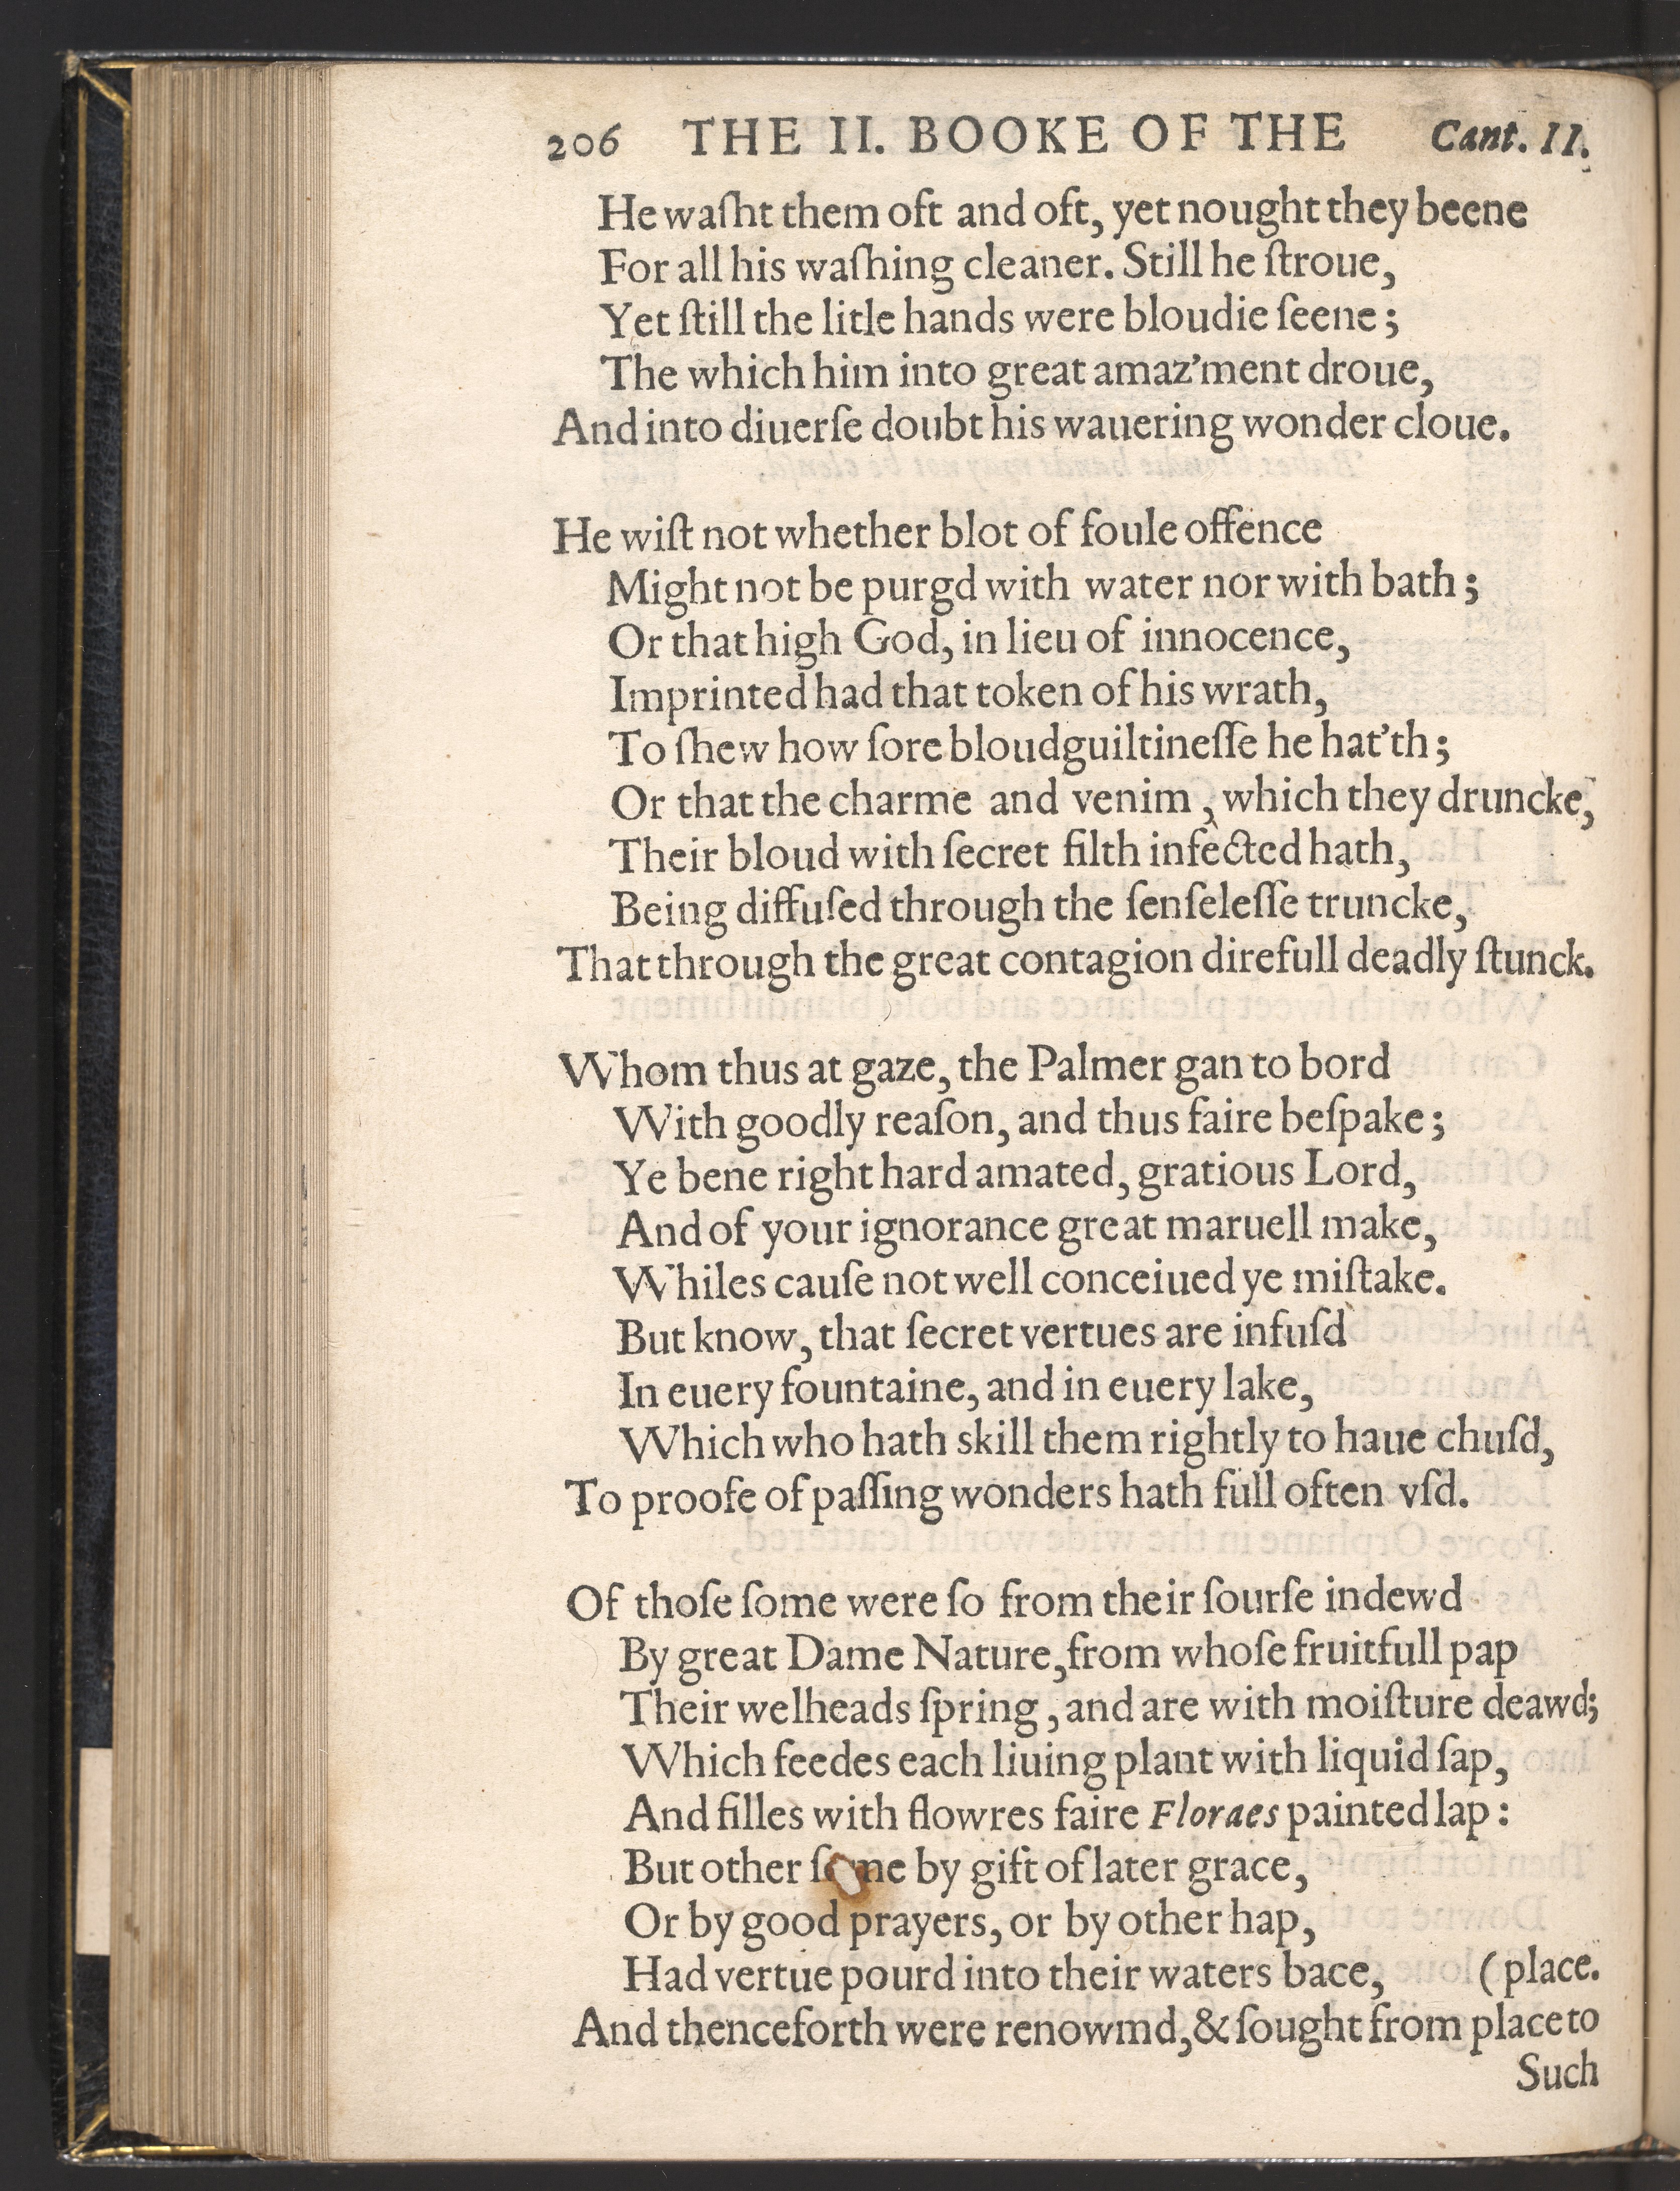 206 THE II. BOOKE OF THE Cant. II.
He waſht them oft and oft, yet nought they beene
For all his waſhing cleaner. Still he ſtroue,
Yet ſtill the litle hands were bloudie ſeene;
The which him into great amaz'ment droue,
And into diuerſe doubt his wauering wonder cloue.
He wiſt not whether blot of foule offence
Might not be purgd with water nor with bath;
Or that high God, in lieu of innocence,
Imprinted had that token of his wrath,
To ſhew how ſore bloudguiltineſſe he hat'th;
Or that the charme and venim, which they druncke,
Their bloud with ſecret filth infected hath,
Being diffuſed through the ſenſeleſſe truncke,
That through the great contagion direfull deadly ſtunck.
Whom thus at gaze, the Palmer gan to bord
With goodly reaſon, and thus faire beſpake;
Ye bene right hard amated, gratious Lord,
And of your ignorance great maruell make,
Whiles cauſe not well conceiued ye miſtake.
But know, that ſecret vertues are infuſd
In euery fountaine, and in euery lake,
Which who hath skill them rightly to haue chuſd,
To proofe of paſſing wonders hath full often vſd.
Of thoſe ſome were ſo from their ſourſe indewd
By great Dame Nature, from whoſe fruitfull pap
Their welheads ſpring, and are with moiſture deawd;
Which feedes each liuing plant with liquid ſap,
And filles with flowres faire Floraes painted lap:
But other ſome by gift of later grace,
Or by good prayers, or by other hap,
Had vertue pourd into their waters bace, (place.
And thenceforth were renowmd, & ſought from place to
Such